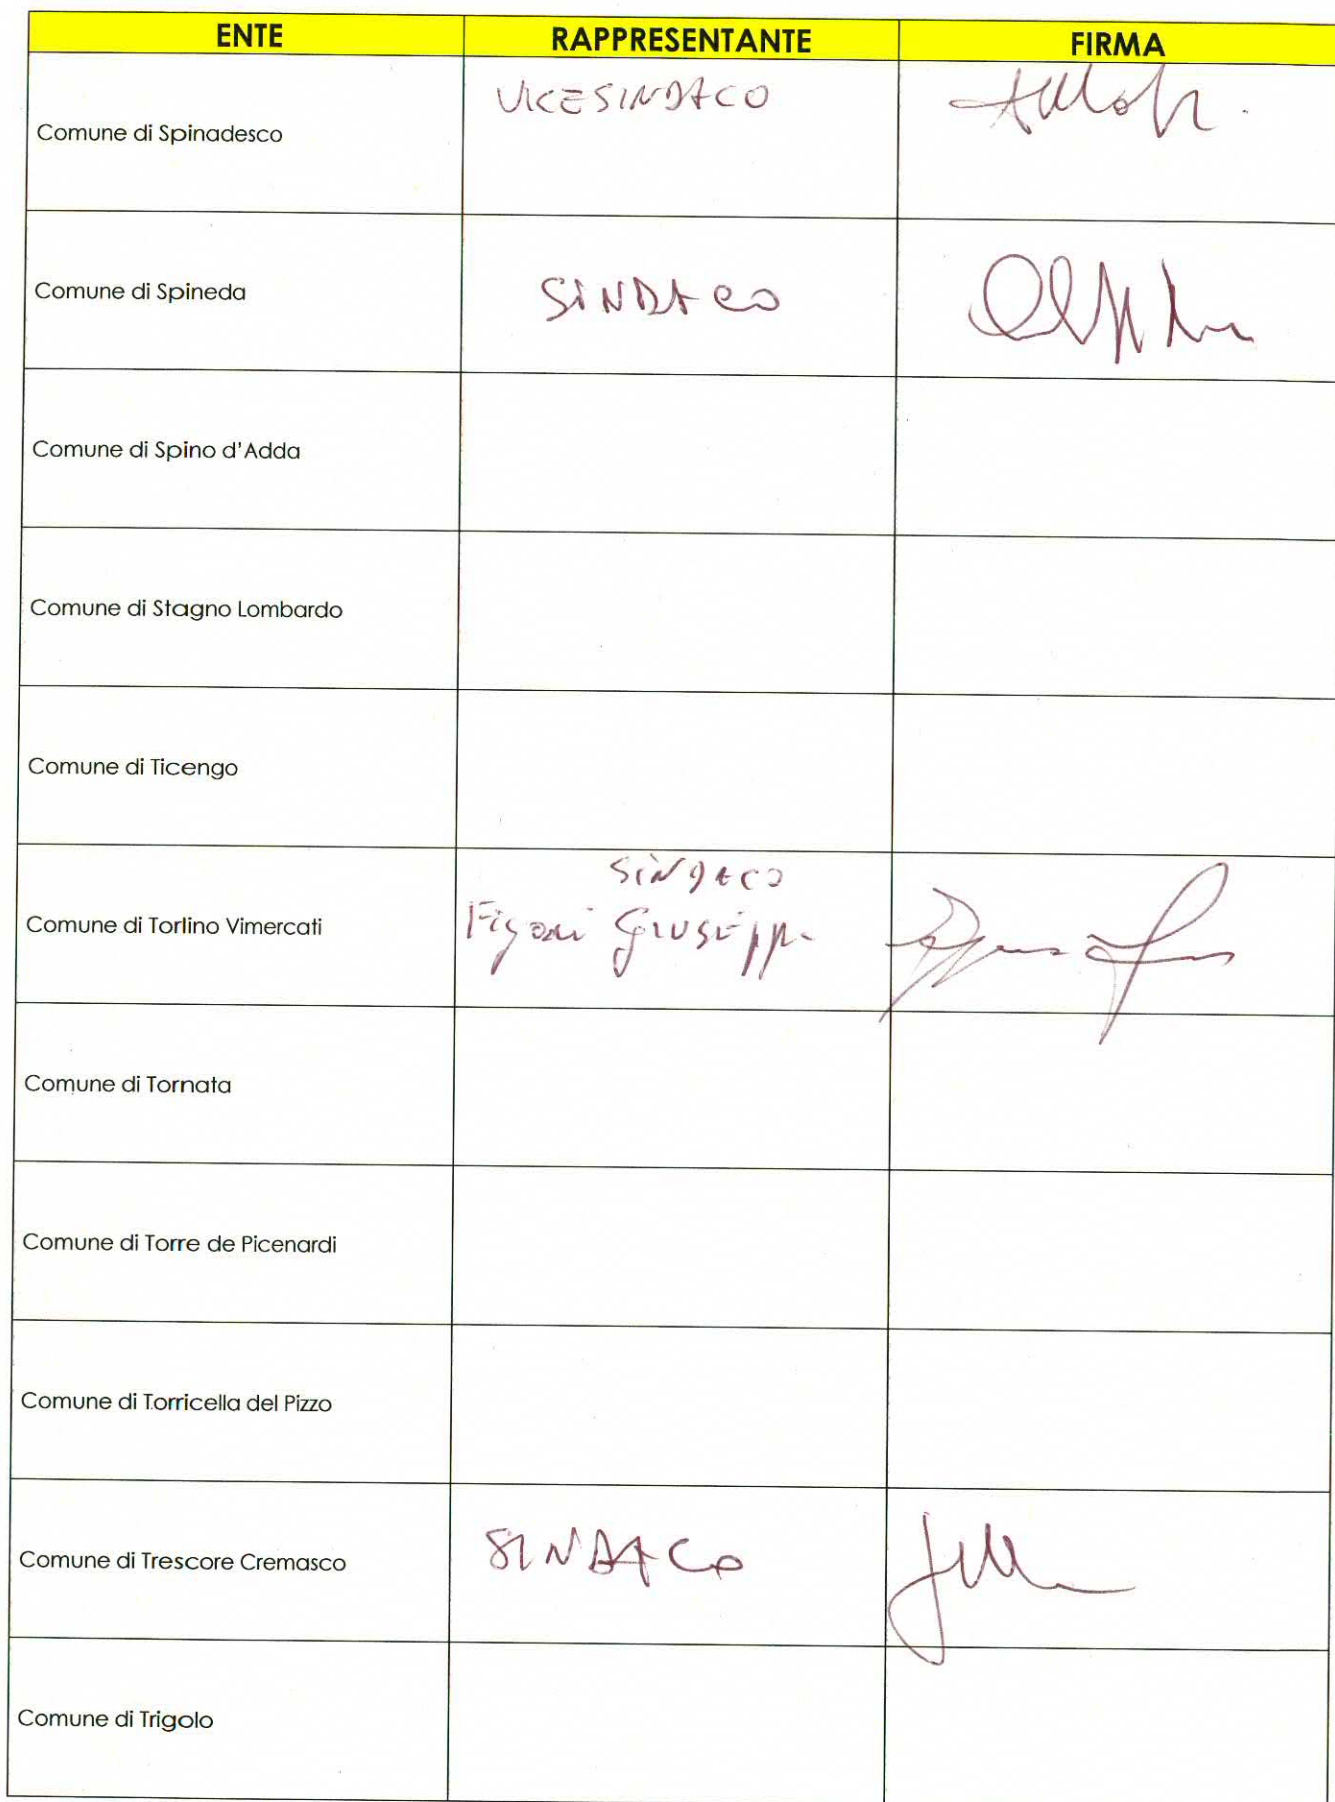 ENTE RAPPRESENTANTE FIRMA
Comune di Spinadesco VICESINDACO
Comune di Spineda SINDACO
Comune di Spino d'Adda
Comune di Stagno Lombardo
Comune di Ticengo
SINDACO
Comune di Torlino Vimercati Figoni Giuseppe
Comune di Tornata
Comune di Torre de Picenardi
Comune di Torricella del Pizzo
Comune di Trescore Cremasco SINDACO
Comune di Trigolo